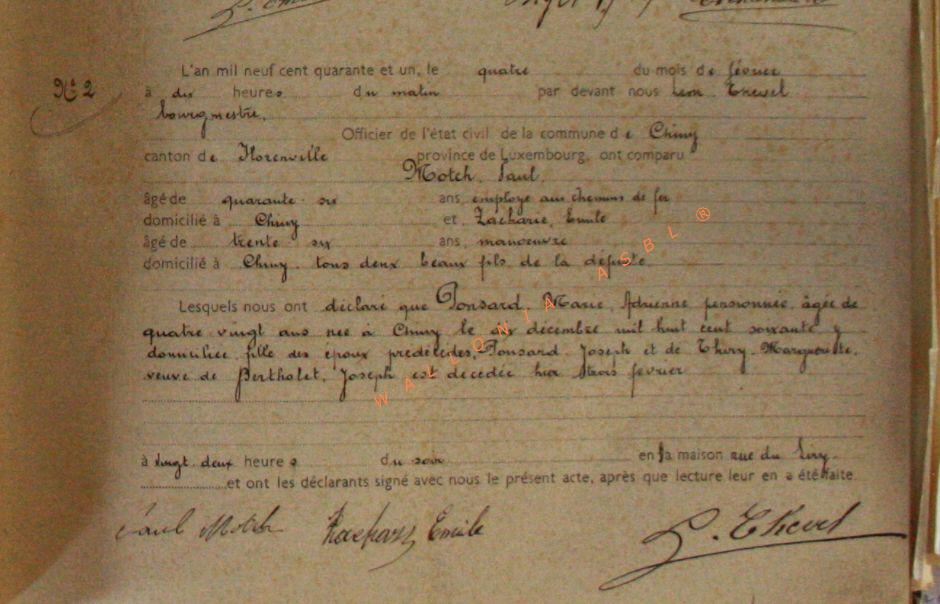 Nº 2
L'an mil neuf cent quarante et un, le quatre du mois de février
à dix heures du matin par devant nous Léon Thevel
bourgmestre,
Officier de l'état civil de la commune de Chiny
canton de Florenville province de Luxembourg, ont comparu
Motch, Paul,
âgé de quarante six ans, employé aux chemins de fer
domicilié à Chiny et Zacharie, Emile
âgé de trente six ans, manoeuvre
domicilié à Chiny, tous deux beaux fils de la défunte
Lesquels nous ont déclaré que Ponsard, Marie, Adrienne pensionnée, âgée de
quatre vingt ans née à Chiny le décembre mil huit cent soixante y
domiciliée, fille des époux prédécédés, Ponsard Joseph et de Thiry Marguerite,
veuve de Bertholet, Joseph est décédée hier trois février
à vingt deux heures du soir en la maison rue du
et ont les déclarants signé avec nous le présent acte, après que lecture leur en a été faite.
Paul Motch Zachary Emile L. Thevel
WALLONIA ASBL ®